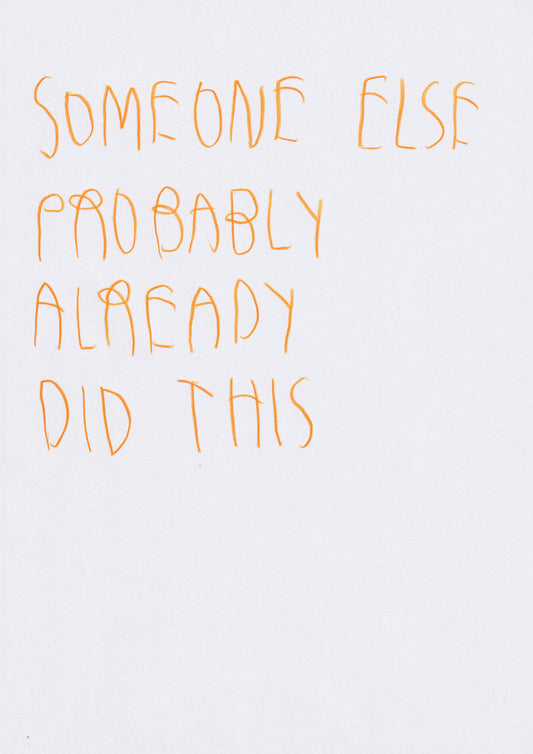 SOMEONE ELSE
PROBABLY
ALREADY
DID THIS